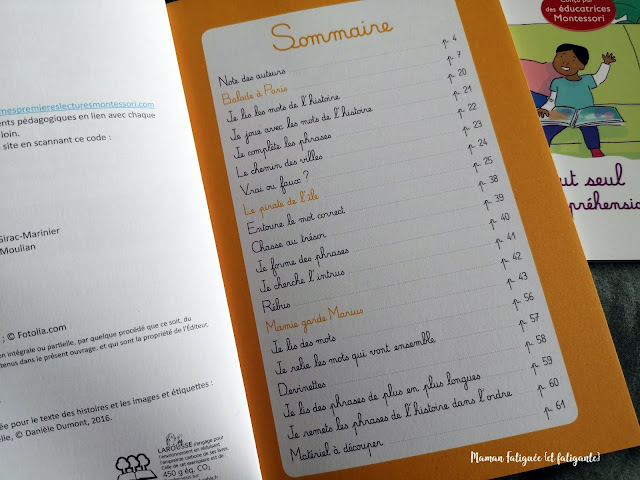 mespremiereslecturesmontessori.com
ents pédagogiques en lien avec chaque
loin.
site en scannant ce code :
Girac-Marinier
Moulian
; © Fotolia.com
on intégrale ou partielle, par quelque procédé que ce soit, du
tenus dans le présent ouvrage, et qui sont la propriété de l'Éditeur.
ée pour le texte des histoires et les images et étiquettes :
lle, © Danièle Dumont, 2016.
LAROUSSE s'engage pour
l'environnement en réduisant
l'empreinte carbone de ses livres.
Celle de cet exemplaire est de :
450 g éq. CO₂
Sommaire
Note des auteurs p. 4
Balade à Paris p. 7
Je lis les mots de l'histoire p. 20
Je joue avec les mots de l'histoire p. 21
Je complète les phrases p. 22
Le chemin des villes p. 23
Vrai ou faux ? p. 24
Le pirate de l'île p. 25
Entoure le mot correct p. 38
Chasse au trésor p. 39
Je forme des phrases p. 40
Je cherche l'intrus p. 41
Rébus p. 42
Mamie garde Marius p. 43
Je lis des mots p. 56
Je relie les mots qui vont ensemble p. 57
Devinettes p. 58
Je lis des phrases de plus en plus longues p. 59
Je remets les phrases de l'histoire dans l'ordre p. 60
Matériel à découper p. 61
Conçu par
des éducatrices
Montessori
ut seul
préhensio
Maman Fatiguée (et fatigante)